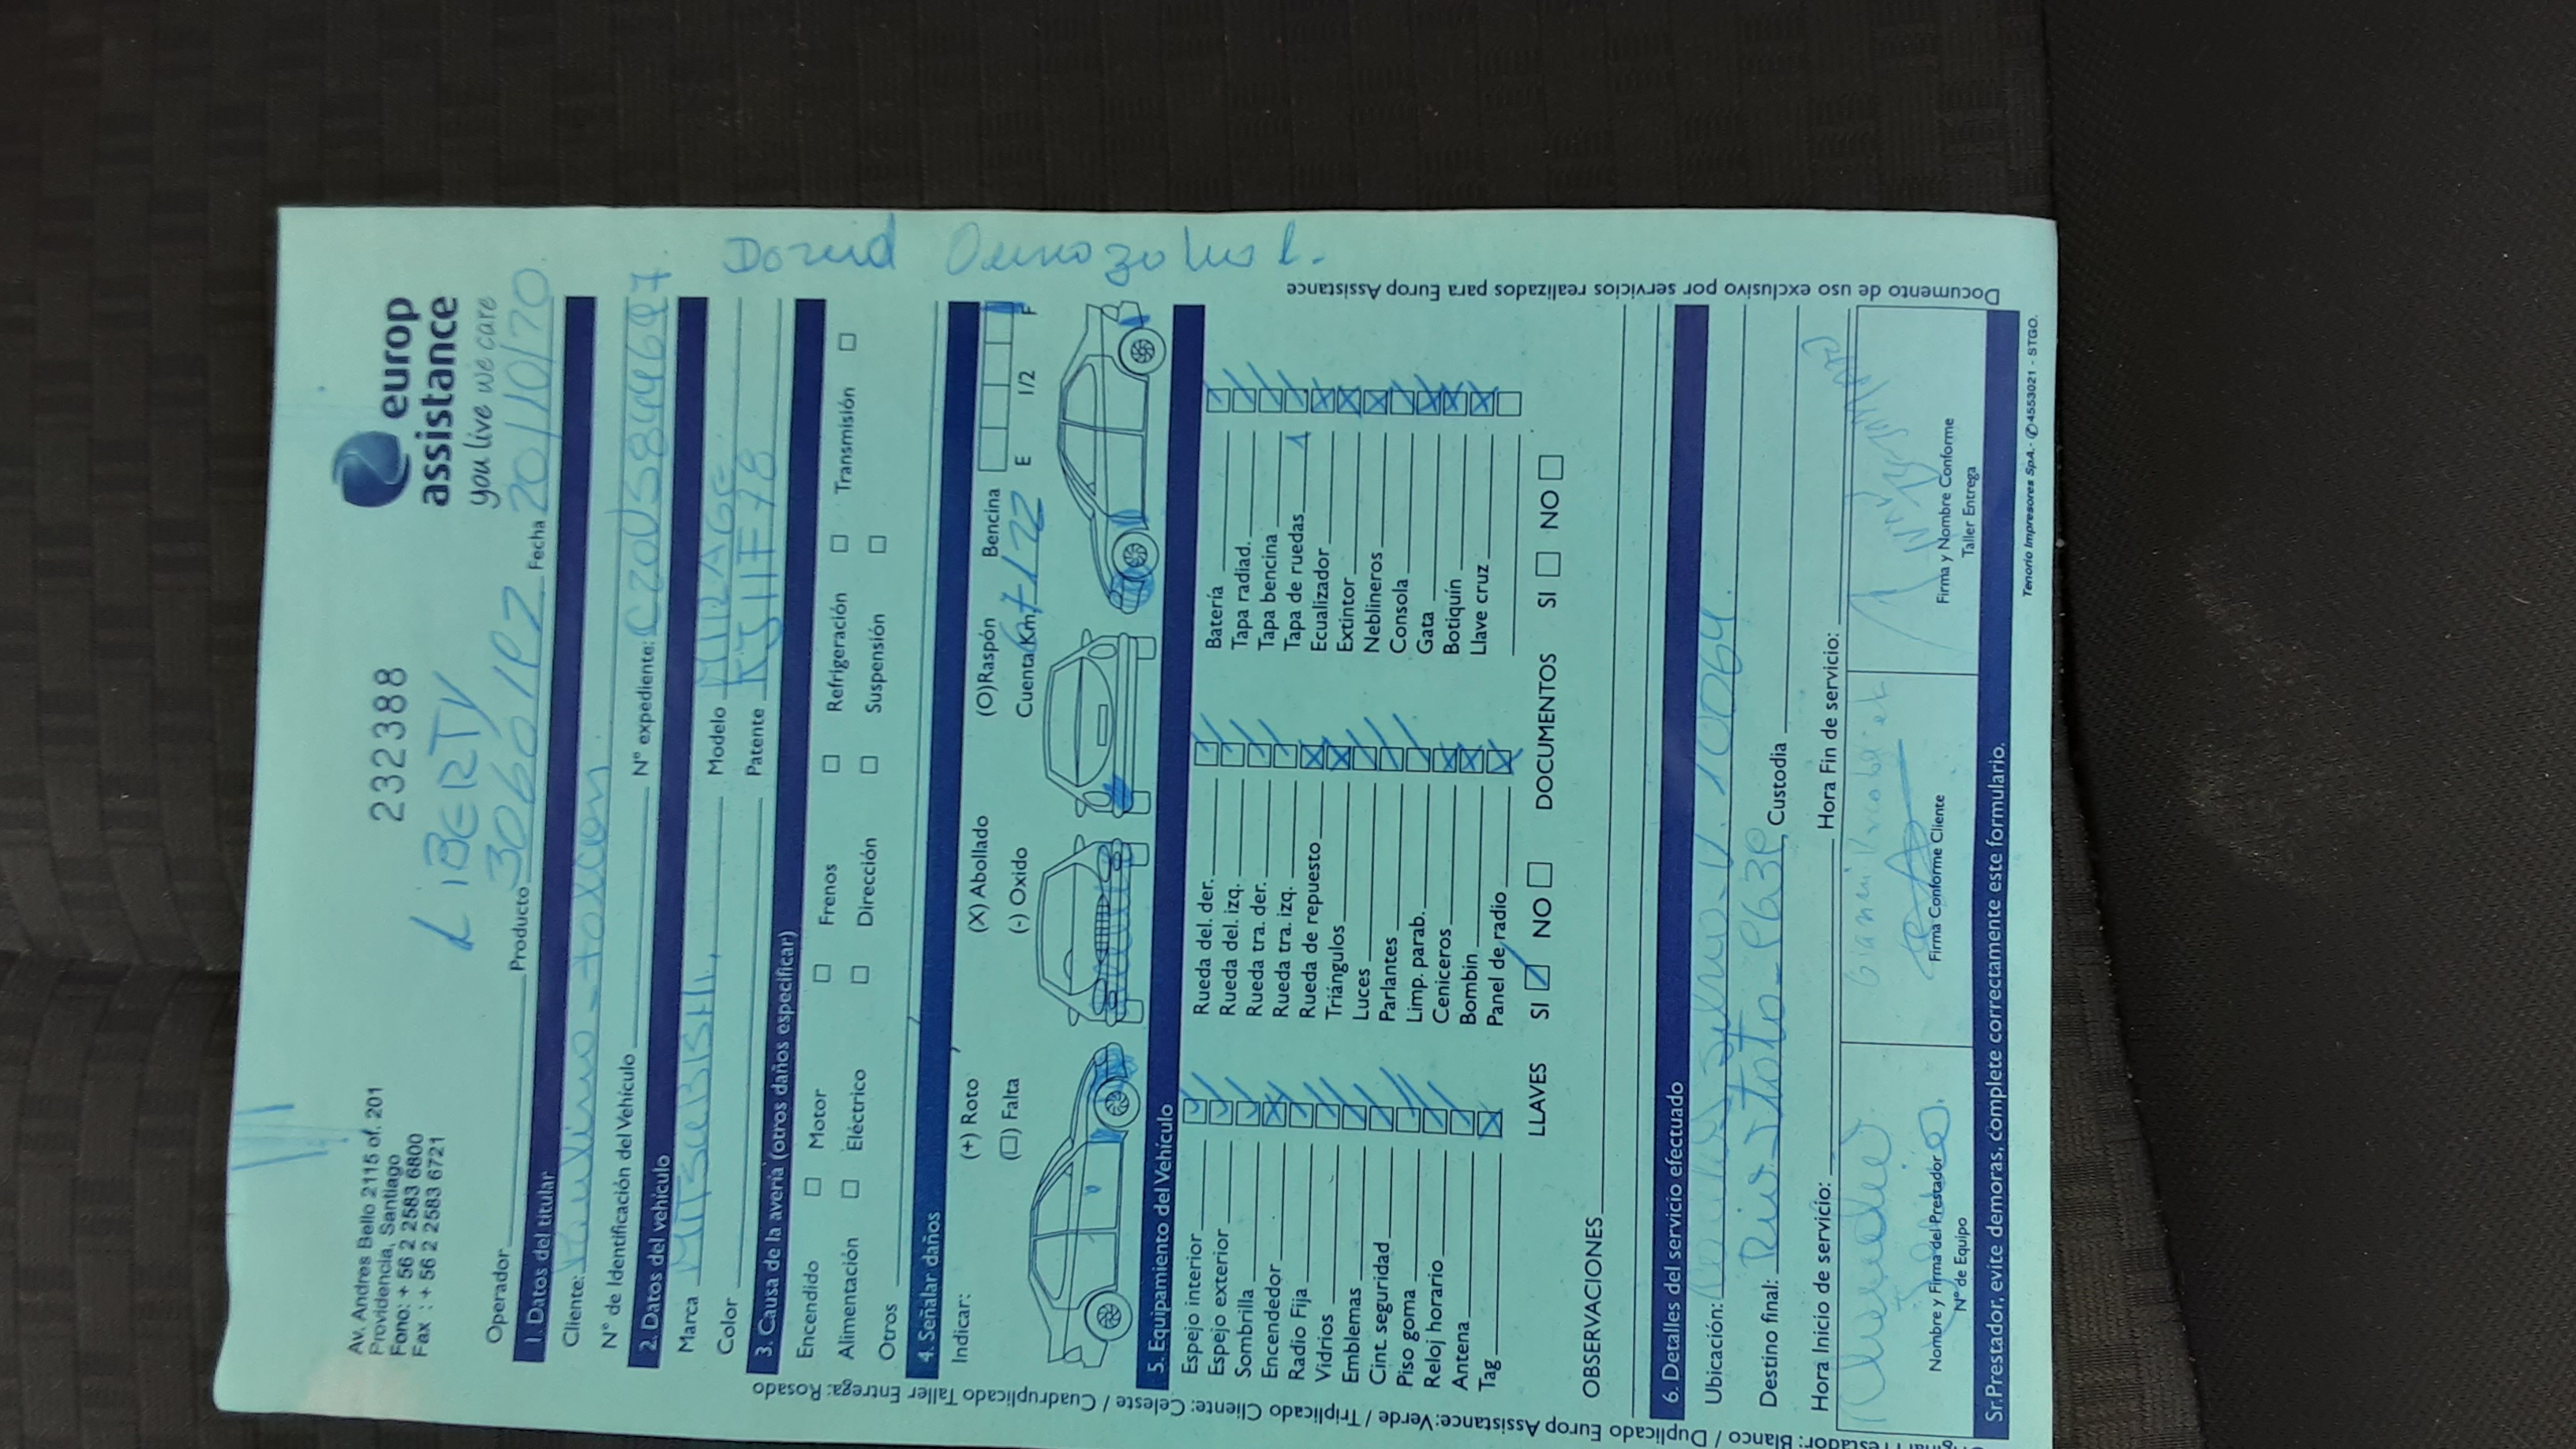 Av. Andres Bello 2115 of. 201
Providencia, Santiago
Fono: + 56 2 2583 6800
Fax : + 56 2 2583 6721
232388
europ
assistance
you live we care
LIBERTY
Operador Producto 306012 Fecha 20/10/20
1. Datos del titular
Cliente:
N° de Identificación del Vehículo N° expediente:
2. Datos del vehículo
Marca MITSUBISHI, Modelo MIRAGE
Color Patente KJHF78
3. Causa de la avería (otros daños especificar)
Encendido Motor Frenos Refrigeración Transmisión
Alimentación Eléctrico Dirección Suspensión
Otros
4. Señalar daños
Indicar: (+) Roto (X) Abollado (O)Raspón Bencina
(□) Falta (-) Oxido Cuenta Km. E 1/2 F
5. Equipamiento del Vehículo
Espejo interior Rueda del. der. Batería
Espejo exterior Rueda del. izq. Tapa radiad.
Sombrilla Rueda tra. der. Tapa bencina
Encendedor Rueda tra. izq. Tapa de ruedas 1
Radio Fija Rueda de repuesto Ecualizador
Vidrios Triángulos Extintor
Emblemas Luces Neblineros
Cint. seguridad Parlantes Consola
Piso goma Limp. parab. Gata
Reloj horario Ceniceros Botiquín
Antena Bombin Llave cruz
Tag Panel de radio
LLAVES SI NO DOCUMENTOS SI NO
OBSERVACIONES
6. Detalles del servicio efectuado
Ubicación: 10064.
Destino final: Custodia
Hora Inicio de servicio: Hora Fin de servicio:
Nombre y Firma del Prestador
N° de Equipo
Firma Conforme Cliente
Firma y Nombre Conforme
Taller Entrega
Sr. Prestador, evite demoras, complete correctamente este formulario.
Tenorio Impresores SpA. - ✆ 4553021 - STGO.
Documento de uso exclusivo por servicios realizados para Europ Assistance
David
Prestador: Blanco / Duplicado Europ Assistance: Verde / Triplicado Cliente: Celeste / Cuadruplicado Taller Entrega: Rosado